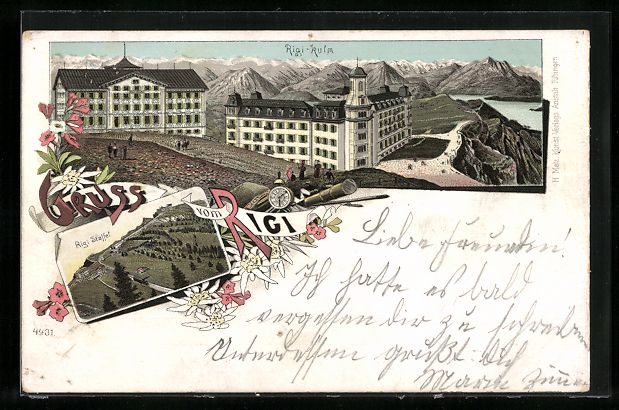 Rigi-Kulm
GRUSS
vom RIGI
Rigi Staffel
4931.
H. Metz, Kunst-Verlags-Anstalt Tübingen
Liebe Freundin!
Ich hatte es bald
vergessen dir zu schreiben
Unterdessen grüßt dich
Marie